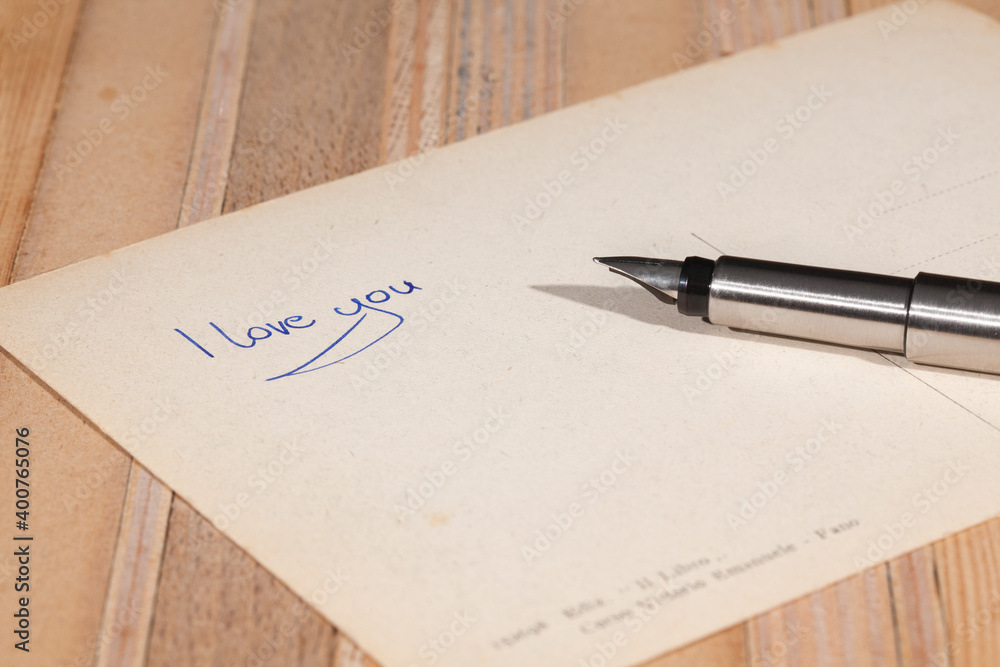 I love you
Ediz. - Il Libro -
Corso Vittorio Emanuele - Fano
Adobe Stock | #400765076